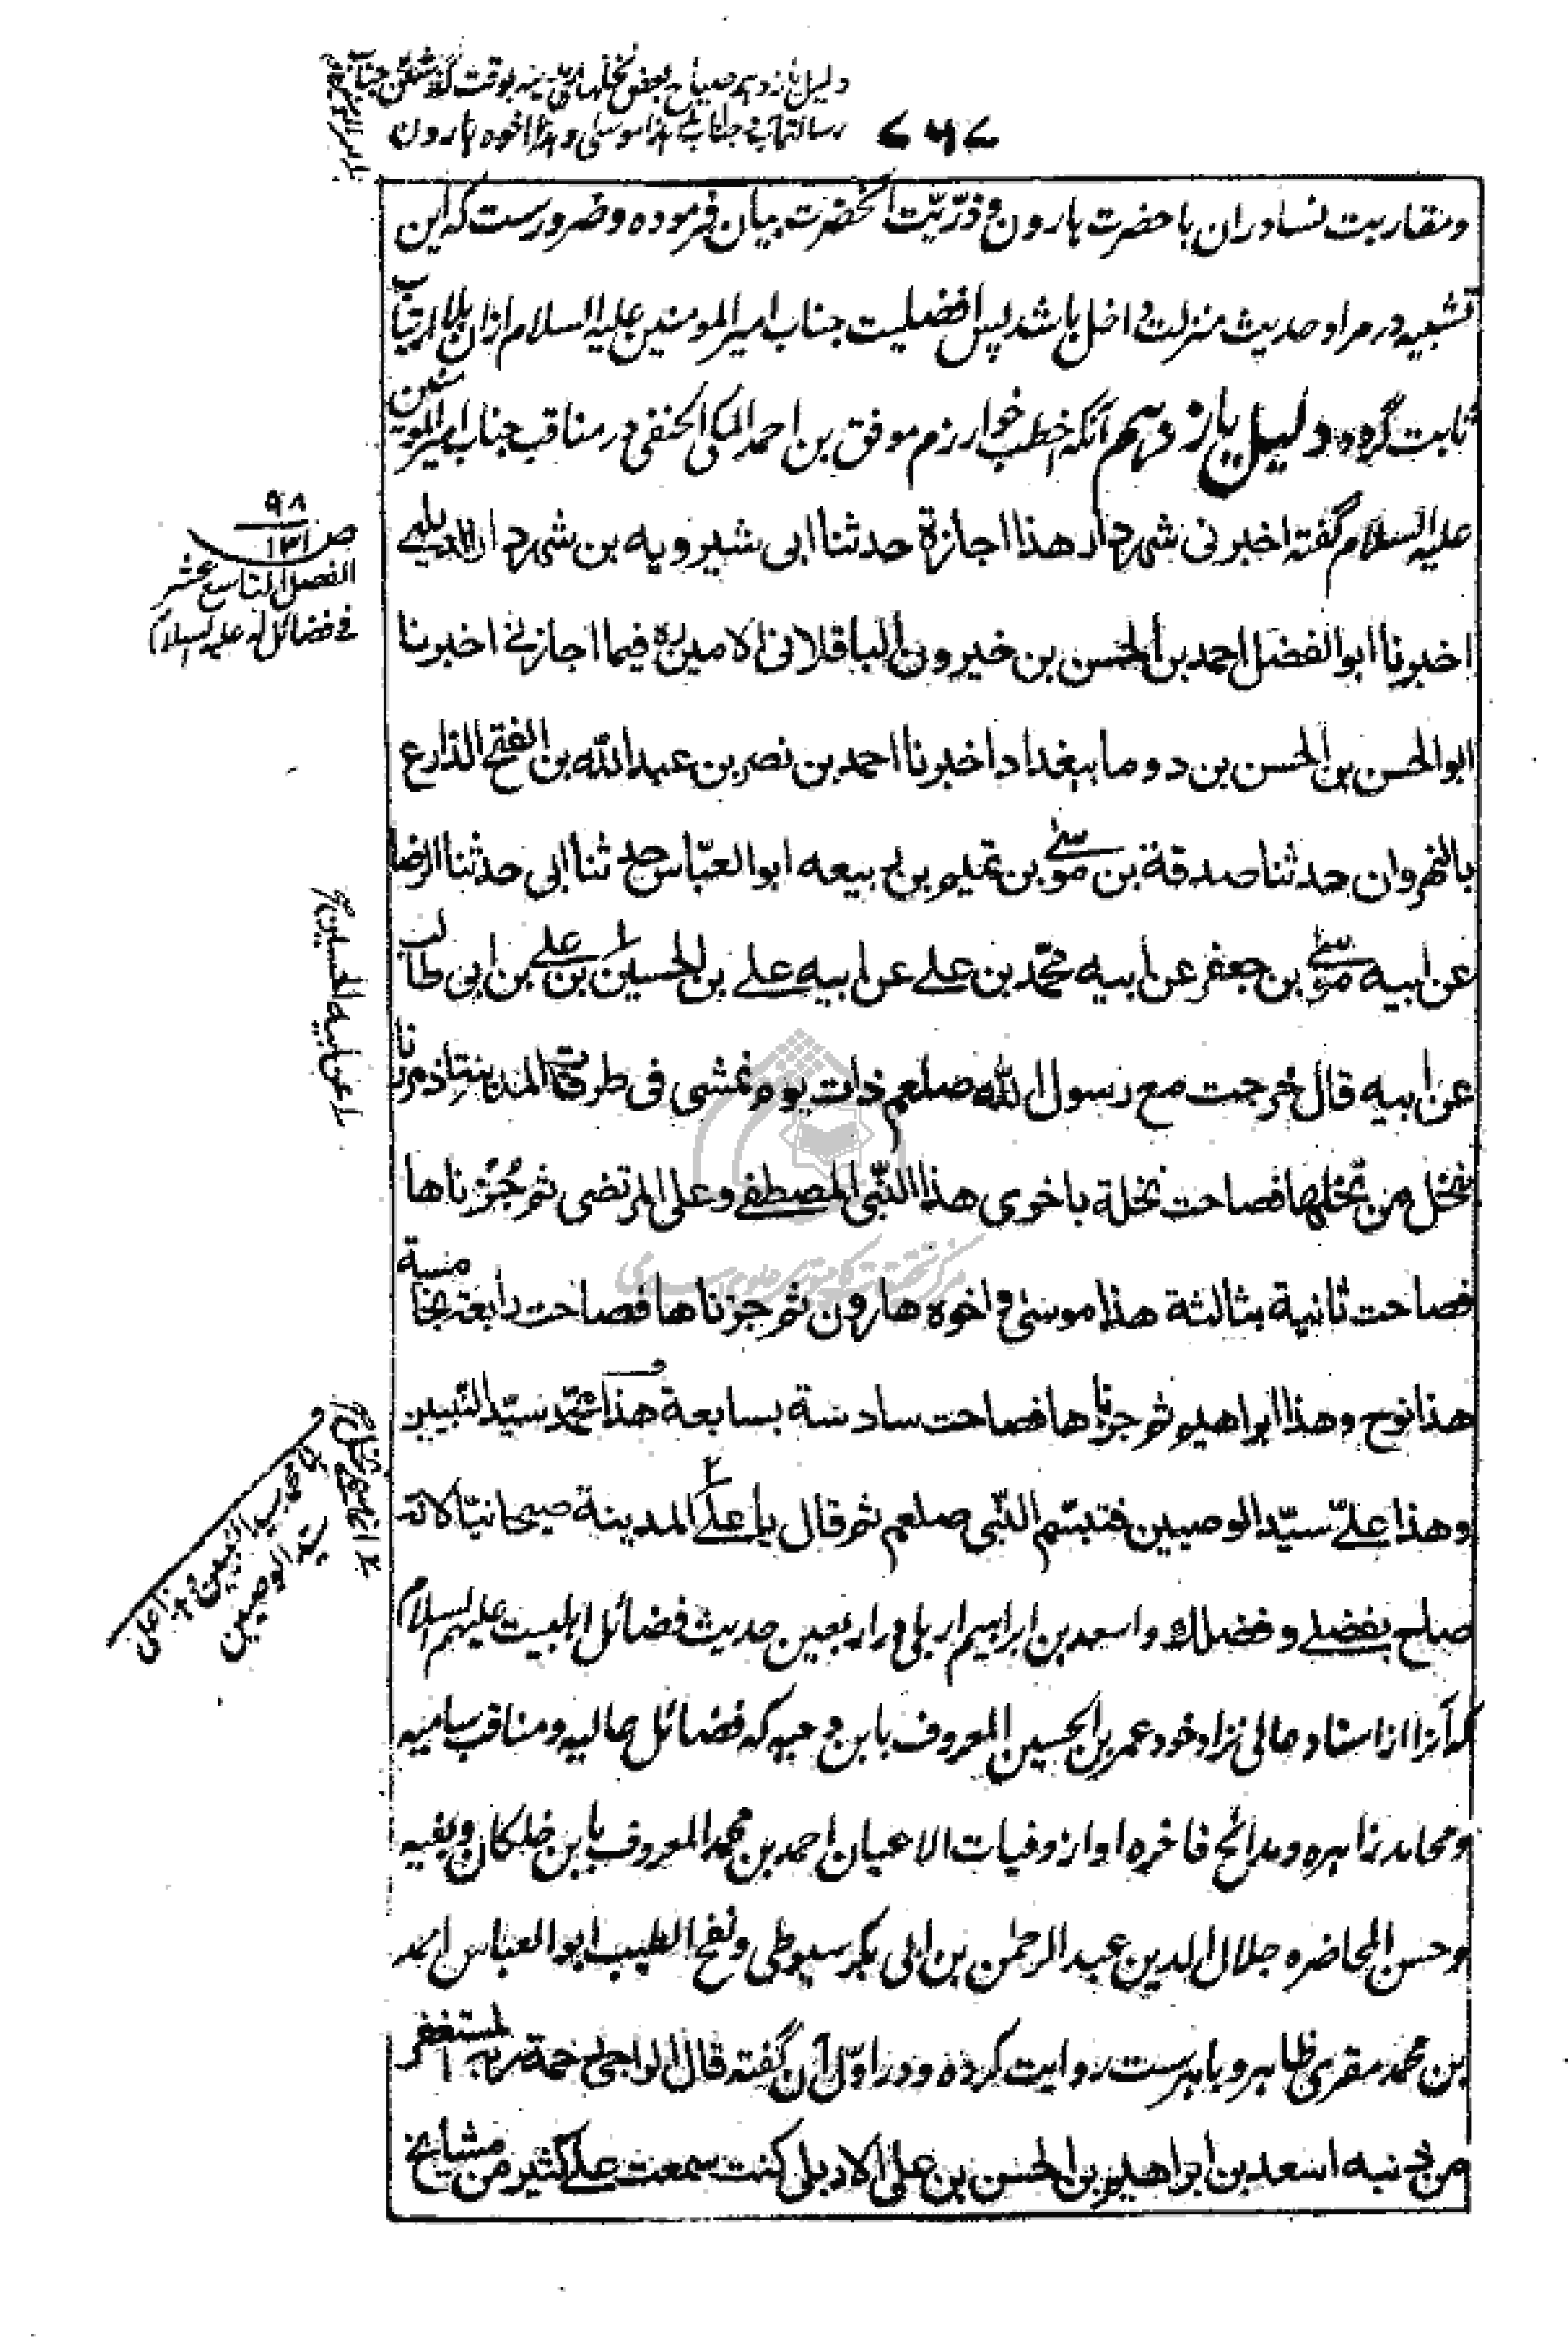 دلیل یازدهم صیاح بعض نخلهای مدینه بوقت گذشتن جناب
رسالتمآب و جناب امیر هذا موسی و هذا اخوه هارون
۷۶۷
و مقاربت نساء دران با حضرت هارون و ذرّیّت آنحضرت بیان فرموده و ضرورست که این
تشبیه در مراد حدیث منزلت داخل باشد پس افضلیت جناب امیر المومنین علیه السلام ازان بلا ارتیاب
ثابت گردد دلیل یازدهم آنکه اخطب خوارزم موفق بن احمد المکی الحنفی در مناقب جناب امیر المومنین
علیه السلام گفته اخبرنی شهردار هذا اجازة حدثنا ابی شیرویه بن شهردار الدیلمی
اخبرنا ابو الفضل احمد بن الحسن بن خیرون الباقلانی الامین ره فیما اجازنی اخبرنا
ابو الحسن بن الحسن بن دوما ببغداد اخبرنا احمد بن نصر بن عبد الله بن الفتح الذارع
بالنهروان حدثنا صدقة بن موسی بن تمیم بن ربیعه ابو العبّاس حدثنا ابی حدثنا الرضا
عن ابیه موسی بن جعفر عن ابیه محمّد بن علی عن ابیه علی بن الحسین بن علی بن ابی طالب
عن ابیه قال خرجت مع رسول الله صلعم ذات یوم نمشی فی طرقات المدینة اذ مررنا
بنخل من نخلها فصاحت نخلة باخری هذا النّبی المصطفی و علی المرتضی ثم جُزناها
فصاحت ثانیة بثالثة هذا موسی و اخوه هارون ثم جزناها فصاحت رابعة بخامسة
هذا نوح و هذا ابراهیم ثم جزناها فصاحت سادسة بسابعة هذا محمّد سیّد النّبیین
و هذا علیّ سیّد الوصیین فتبسّم النّبی صلعم ثم قال یا علی المدینة صیحانیّا لانه
صاح بفضلی و فضلك و اسعد بن ابراهیم اربلی در اربعین حدیث فضائل اہلبیت علیہم السلام
که آنرا از استاد عالی نژاد خود عمر بن الحسین المعروف بابن دحیه که فضائل عالیه و مناقب سامیه
و محامد زاهره و مدائح فاخره او از وفیات الاعیان احمد بن محمد المعروف بابن خلکان و بغیه
و حسن المحاضره جلال الدین عبد الرحمن بن ابی بکر سیوطی و نفح الطیب ابو العباس احمد
بن محمد مقری ظاهر و باهرست روایت کرده و در اوّل آن گفته قال الراجی رحمة ربه المستغفر
من ذنبه اسعد بن ابراهیم بن الحسن بن علی الاربلی کنت سمعت علی کثیر من مشایخ
ص ۹۸
۱۳۱
الفصل التاسع عشر
فی فضائل له علیه السلام
عن ابیه الحسین
محمد سید النبیین و هذا علی
سید الوصیین